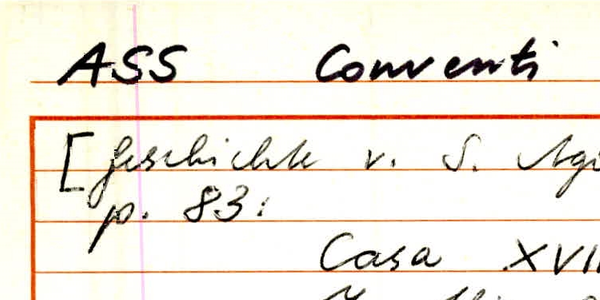 ASS Conventi
[Geschichte v. S. Ago
p. 83:
Casa XVII